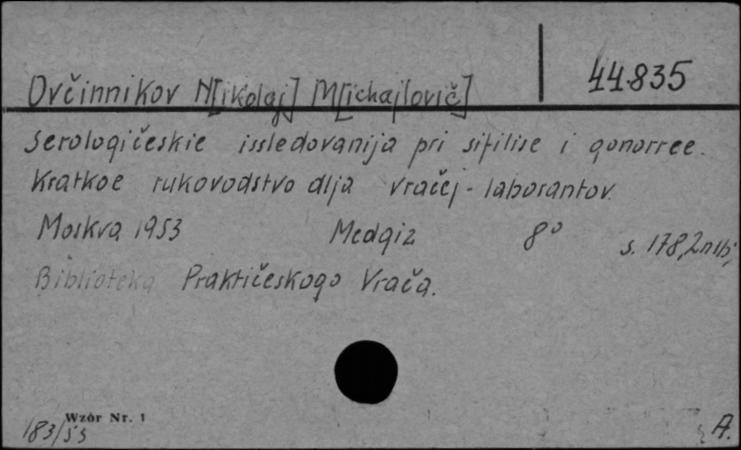 44835
Ovčinnikov N[ikolaj] M[ichajlovič]
Serologičeskie issledovanija pri sifilise i gonorree.
Kratkoe rukovodstvo dlja vračej-laborantov.
Moskva 1953 Medgiz 8° s. 178,2nlb,
Biblioteka Praktičeskogo Vrača.
Wzór Nr. 1
183/53 A.